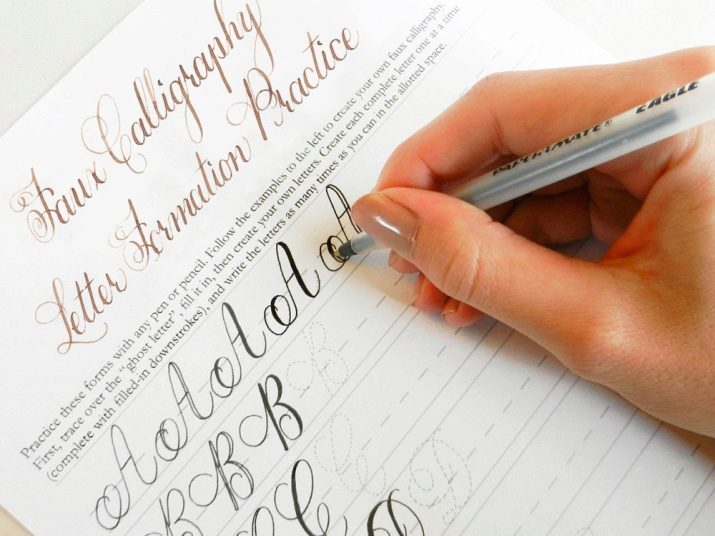 Faux Calligraphy
Letter Formation Practice
Practice these forms with any pen or pencil. Follow the examples to the left to create your own faux calligraphy.
First, trace over the “ghost letter,” fill it in, then create your own letters. Create each complete letter one at a time
(complete with filled-in downstrokes), and write the letters as many times as you can in the allotted space.
A A A A A
B B B B
C C C
D D
PAPER:MATE® EAGLE